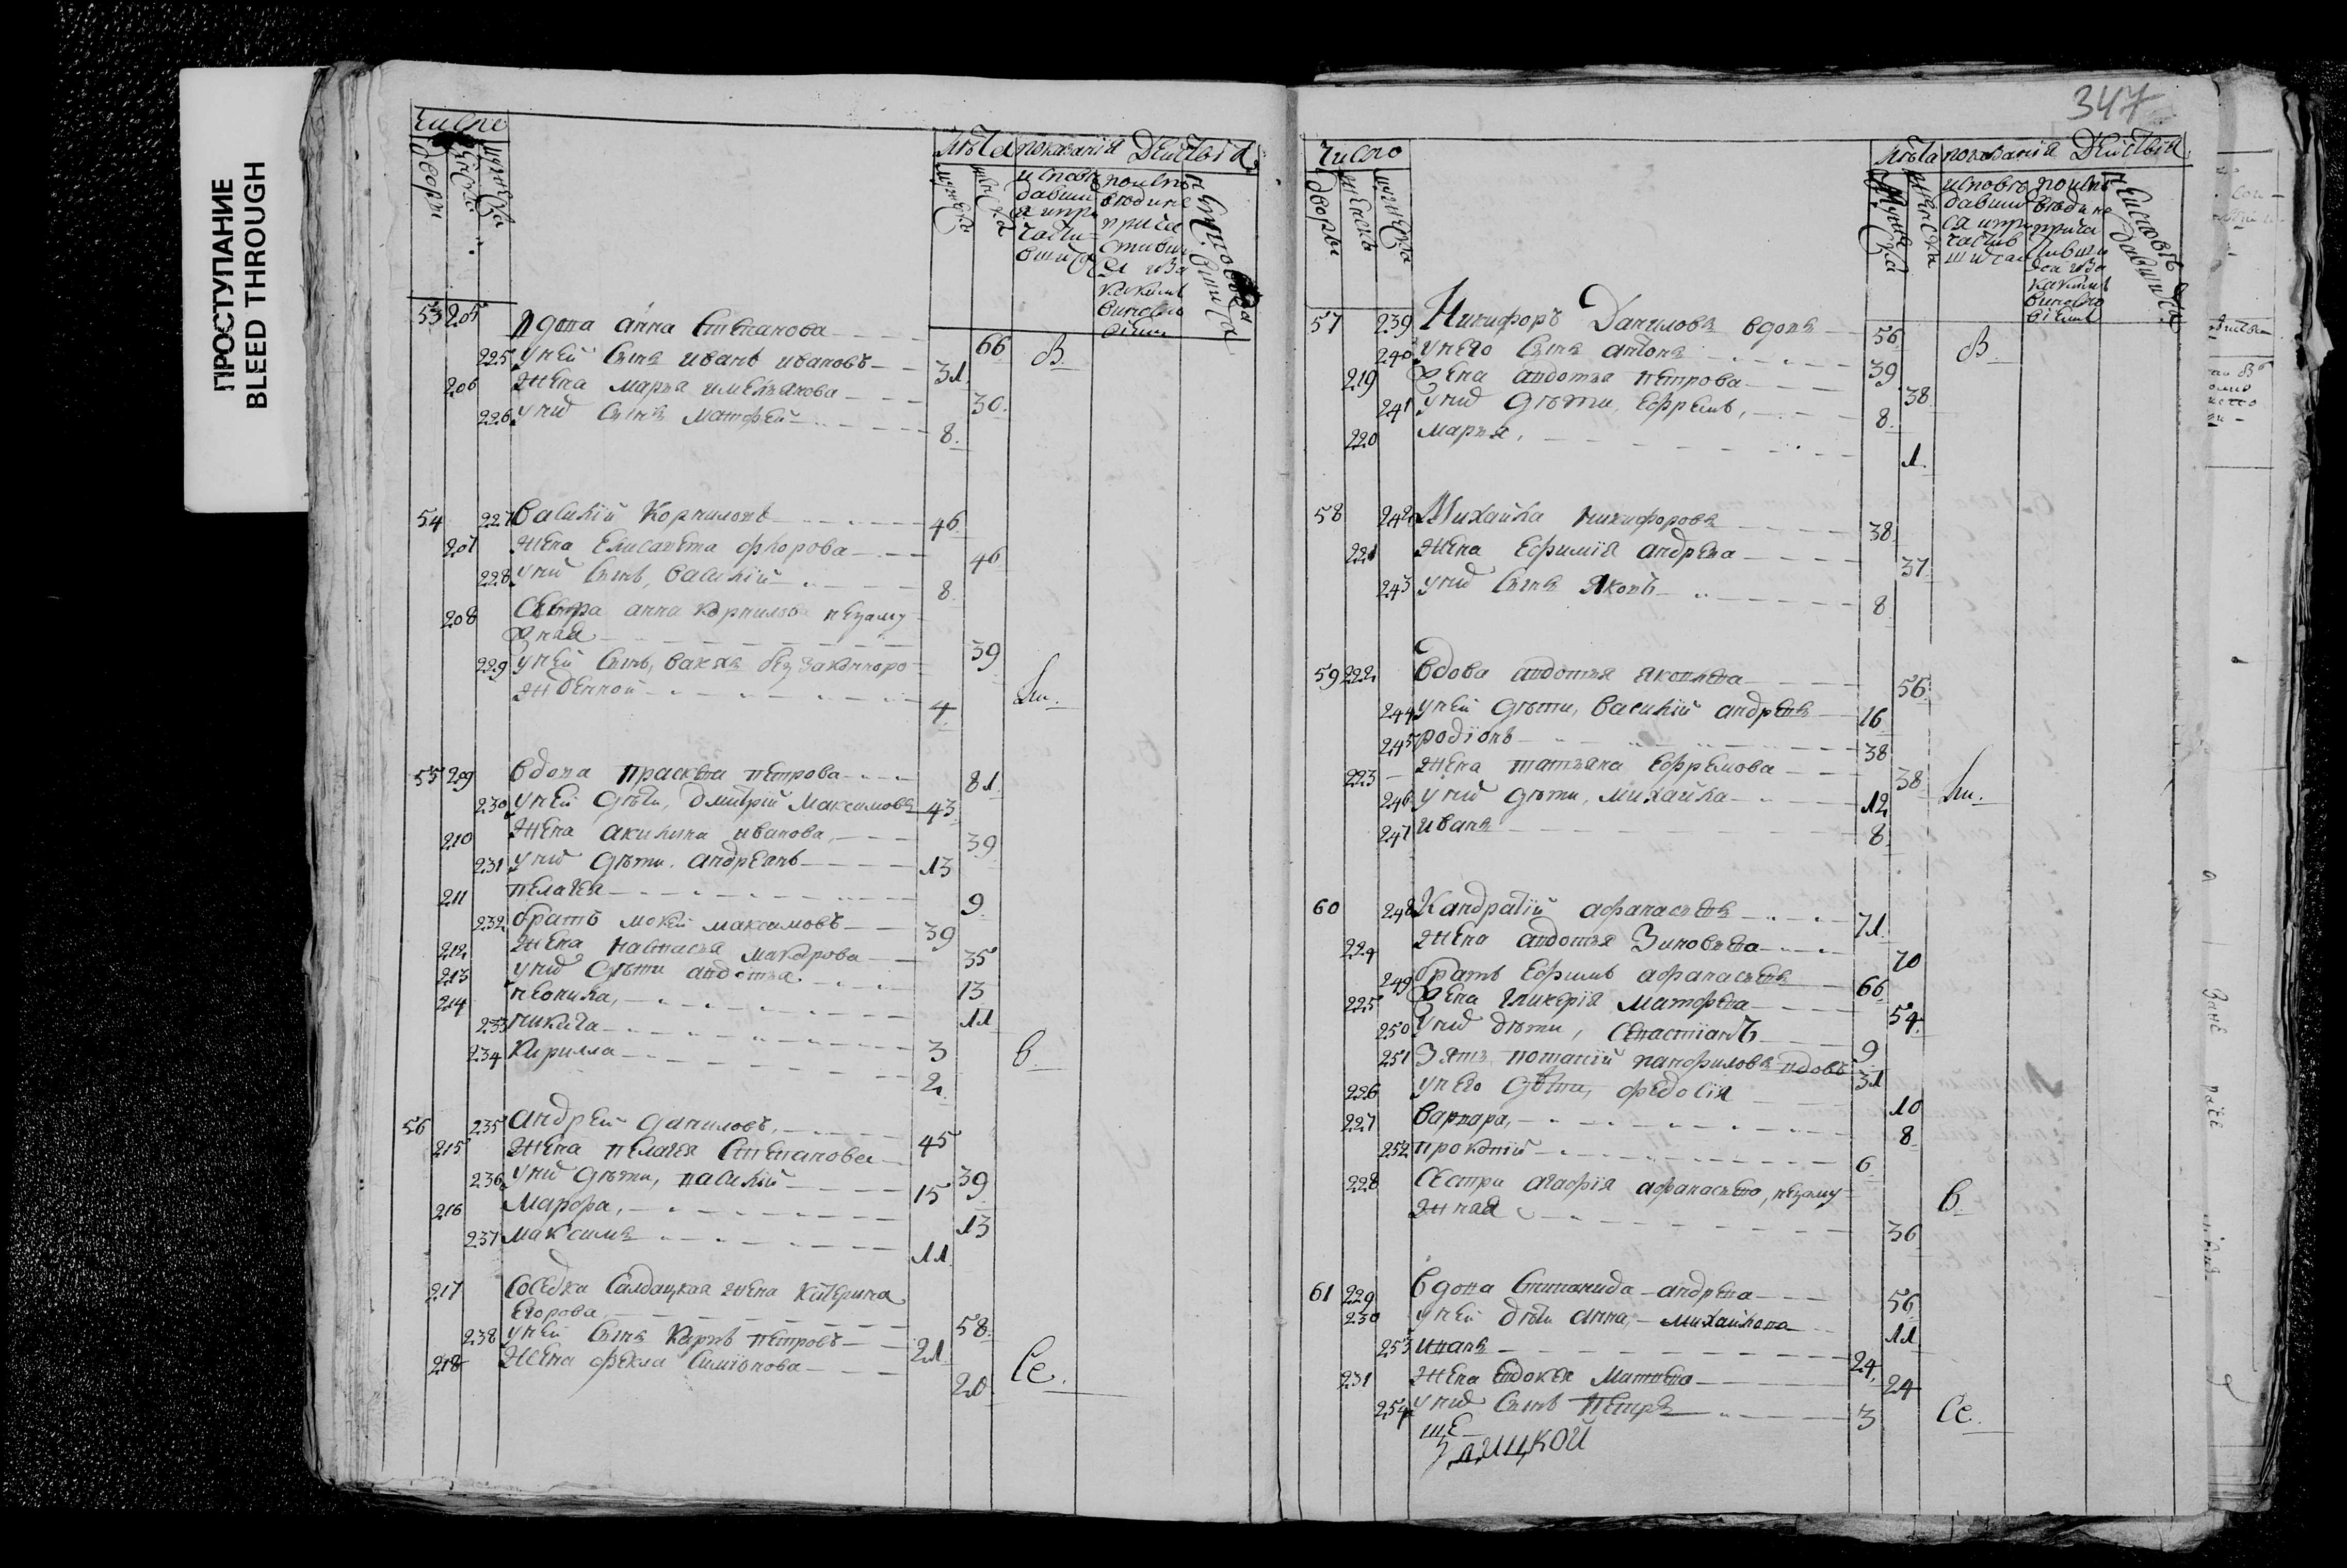 ПРОСТУПАНИЕ
BLEED THROUGH
Число
дворы
женска
мужеска
Лѣта
мужеска
женска
показанія Действа
исповѣ
давши
ся и при
части
вшися
53 205 вдова анна степанова 66 В.
225 у ней сынъ иванъ ивановъ 31
206 жена марья емельянова 30.
226 у них сынъ матфей 8.
54 227 Василий Корниловъ 46
207 жена елисавета флорова 46
228 у них сынъ, василий 8
208 Сестра анна корнилова незаму
жная 39
229 у ней сынъ, беззаконноро
жденной 4
55 209 вдова прасковья петрова 81.
230 у ней дѣти, дмитрий Максимовъ 43
210 жена акилина иванова, 39
231 у них дѣти. андреянъ 13
211 пелагея 9
232 братъ мокей максимовъ 39
212 жена настасья макарова 35
213 у них дѣти авдотья 13
214 неонила, 11
233 никита 3 в.
234 Кирилла 2
56 235 андрей даниловъ, 45
215 жена пелагея Степанова 39
236 у них дѣти, василий 15
216 марфа, 13
237 максимъ 11
217 Соседка салдацкая жена катерина
егорова 58
238 у ней сынъ Карпъ петровъ 21
218 жена фекла симионова 20 Се.
347
Число
дворы
женска
мужеска
Лѣта
мужеска
женска
показанія Действа
исповѣ
давши
ся и при
частив
шися
57 239 Никифоръ Даниловъ вдовъ 56 В
240 у него сынъ антонъ 39
219 жена авдотья петрова 38
241 у них дѣти, ефремъ, 8
220 марья, 1.
58 242 Михайла никифоровъ 38
221 жена Ефимія андреева 37
243 у них сынъ яковъ 8
59 222 вдова авдотья яковлева 56
244 у ней дѣти, василий андреевъ 16
245 родіонъ 38
223 жена татьяна ефремова 38
246 у них дѣти, михайла 12
247 иванъ 8
60 248 Кандратий афанасьевъ 71.
224 жена авдотья Зиновьева 70
249 братъ ефимъ афанасьевъ 66
225 жена гликерія матфеева 54
250 у них дѣти, севастіанъ 9
251 Зять потапій панфиловъ вдовъ 31
226 у него дѣти, федосія 10
227 варвара, 8
252 прокопій 6
228 Сестра агафія афанасьева, незаму
жная 36 в.
61 229 вдова степанида андреева 56
230 у ней дѣти анна, михайлова 11
253 иванъ 24
231 жена евдокея матвеева 24
254 у них сынъ петръ 3 Се.